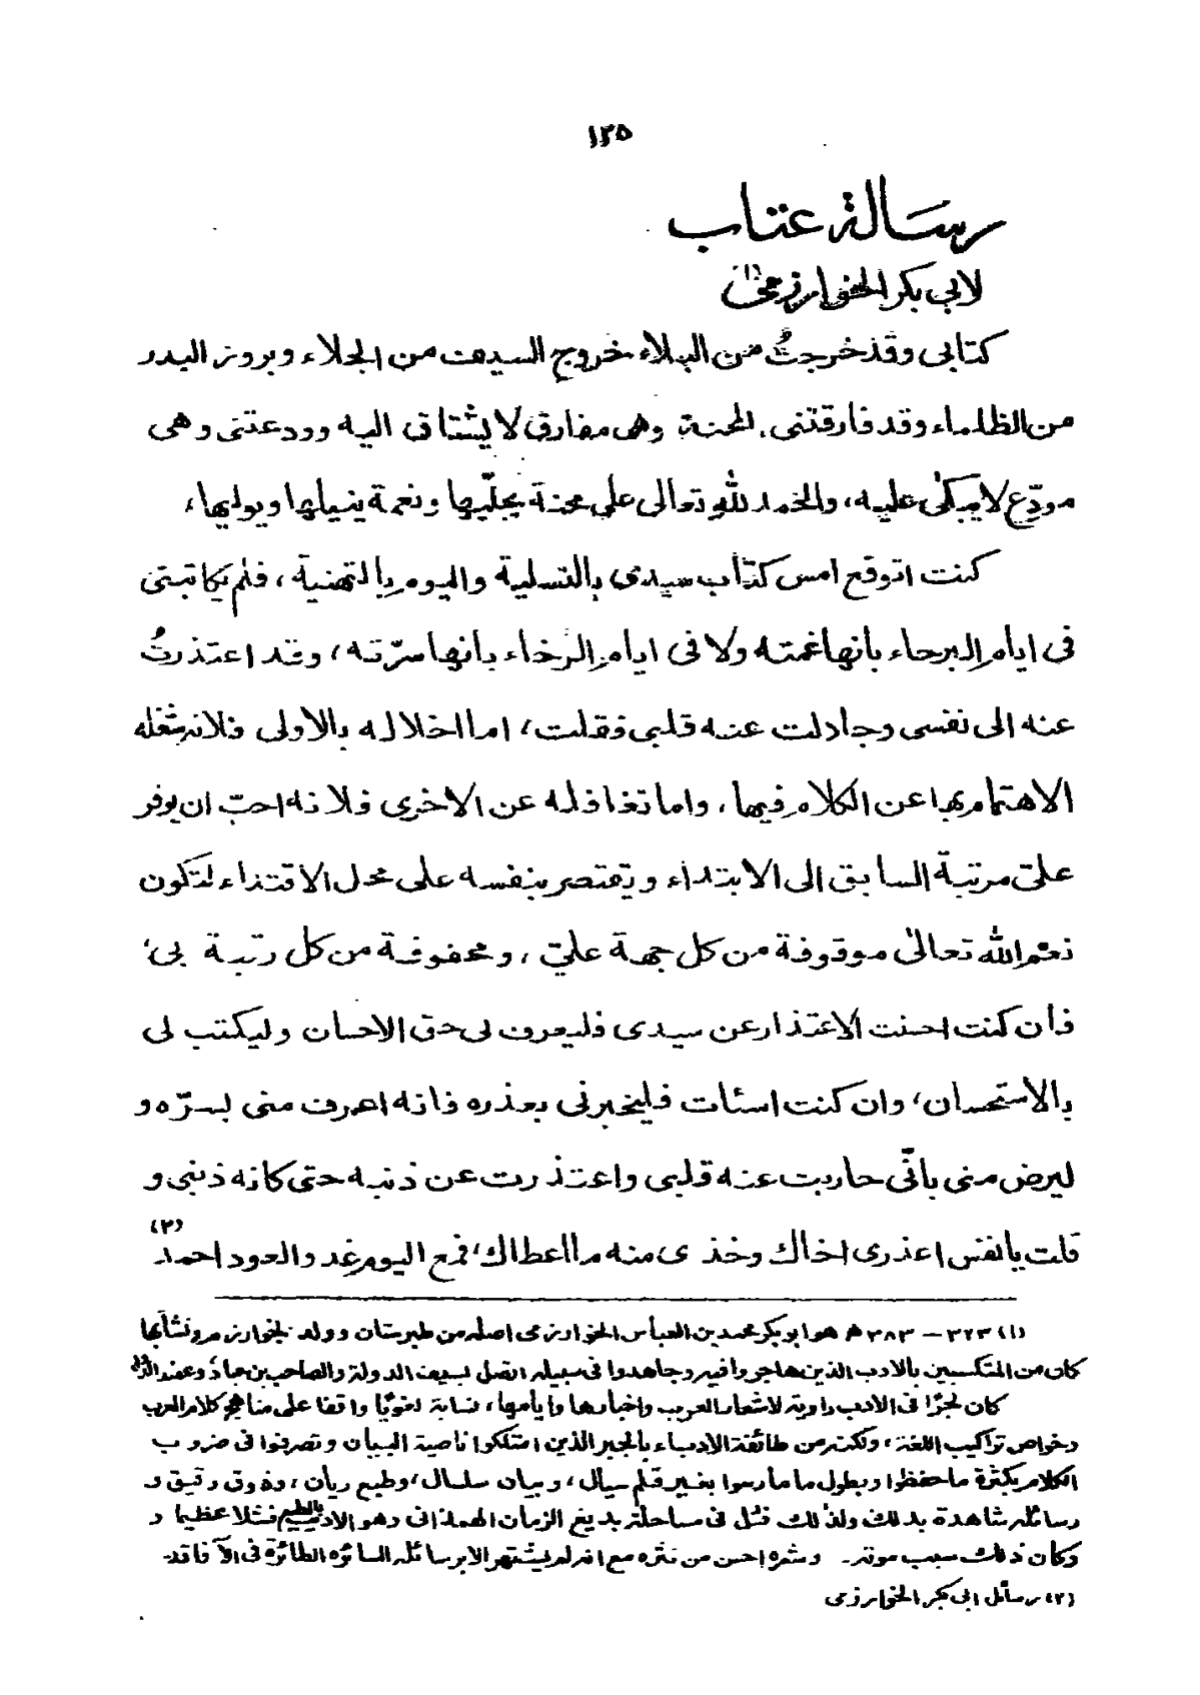 ١٢٥
رسالة عتاب
لابي بكر الخوارزمي (١)
كتابى وقد خرجتُ من البلاء خروج السيف من الجلاء وبروز البدر
من الظلماء وقد فارقتنى المحنة وهى مفارق لا يشتاق اليه وودعتنى وهى
مودّع لا يبكى عليه، والحمد لله تعالى على محنة يجلّيها ونعمة ينيلها ويوليها،
كنت اتوقع امس كتاب سيدى بالتسلية واليوم بالتهنية، فلم يكاتبنى
فى ايام البرحاء بأنها غمته ولا فى ايام الرخاء بانها سرّته، وقد اعتذرتُ
عنه الى نفسى وجادلت عنه قلبى فقلت، اما اخلاله بالاولى فلانه شغله
الاهتمام بها عن الكلام فيها، واما تغافله عن الاخرى فلانه احبّ ان يوفر
علىّ مرتبة السابق الى الابتداء ويقتصر بنفسه على محل الاقتداء لتكون
نعم الله تعالىٰ موقوفة من كل جهة علىّ، ومحفوفة من كل رتبة بى،
فان كنت احسنت الاعتذار عن سيدى فليعرف لى حق الاحسان وليكتب لى
بالاستحسان، وان كنت اسئات فليخبرنى بعذره فانه اعرف منى بسرّه و
ليرض منى بانّى حاربت عنه قلبى واعتذرت عن ذنبه حتى كانه ذنبى و
قلت يا نفس اعذرى اخاك وخذى منه ما اعطاك، فمع اليوم غد والعود احمد (٢)
(١) ٣٢٣ – ٣٨٣ م هو ابوبكر محمد بن العباس الخوارزمى اصله من طبرستان وولد بخوارزم ونشأ بها
كان من المتكسبين بالادب الذين هاجروا فيه وجاهدوا فى سبيله اتصل بسيف الدولة والصاحب بن عباد وعضد الدولة
كان بحرًا فى الادب راوية لاشعار العرب واخبارها وايامها، نسابة لغويًا واقفا على مناهج كلام العرب
وخواص تراكيب اللغة، ولكنه من طائفة الادباء بالجبر الذين امتلكوا ناصية البيان وتصرفوا فى ضروب
الكلام بكثرة ما حفظوا وبطول ما مارسوا بغير قلم سيال، وبيان سلسال، وطبع ريان، وذوق رقيق و
رسائله شاهدة بذلك ولذلك فشل فى مساجلة بديع الزمان الهمذانى وهو الاديب بالطبع فشلا عظيما و
وكان ذلك سبب موته۔ وشعره احسن من نثره مع انه لم يشتهر الا برسائله السائرة الطائرة فى الآفاق۔
(٢) رسائل ابى بكر الخوارزمى